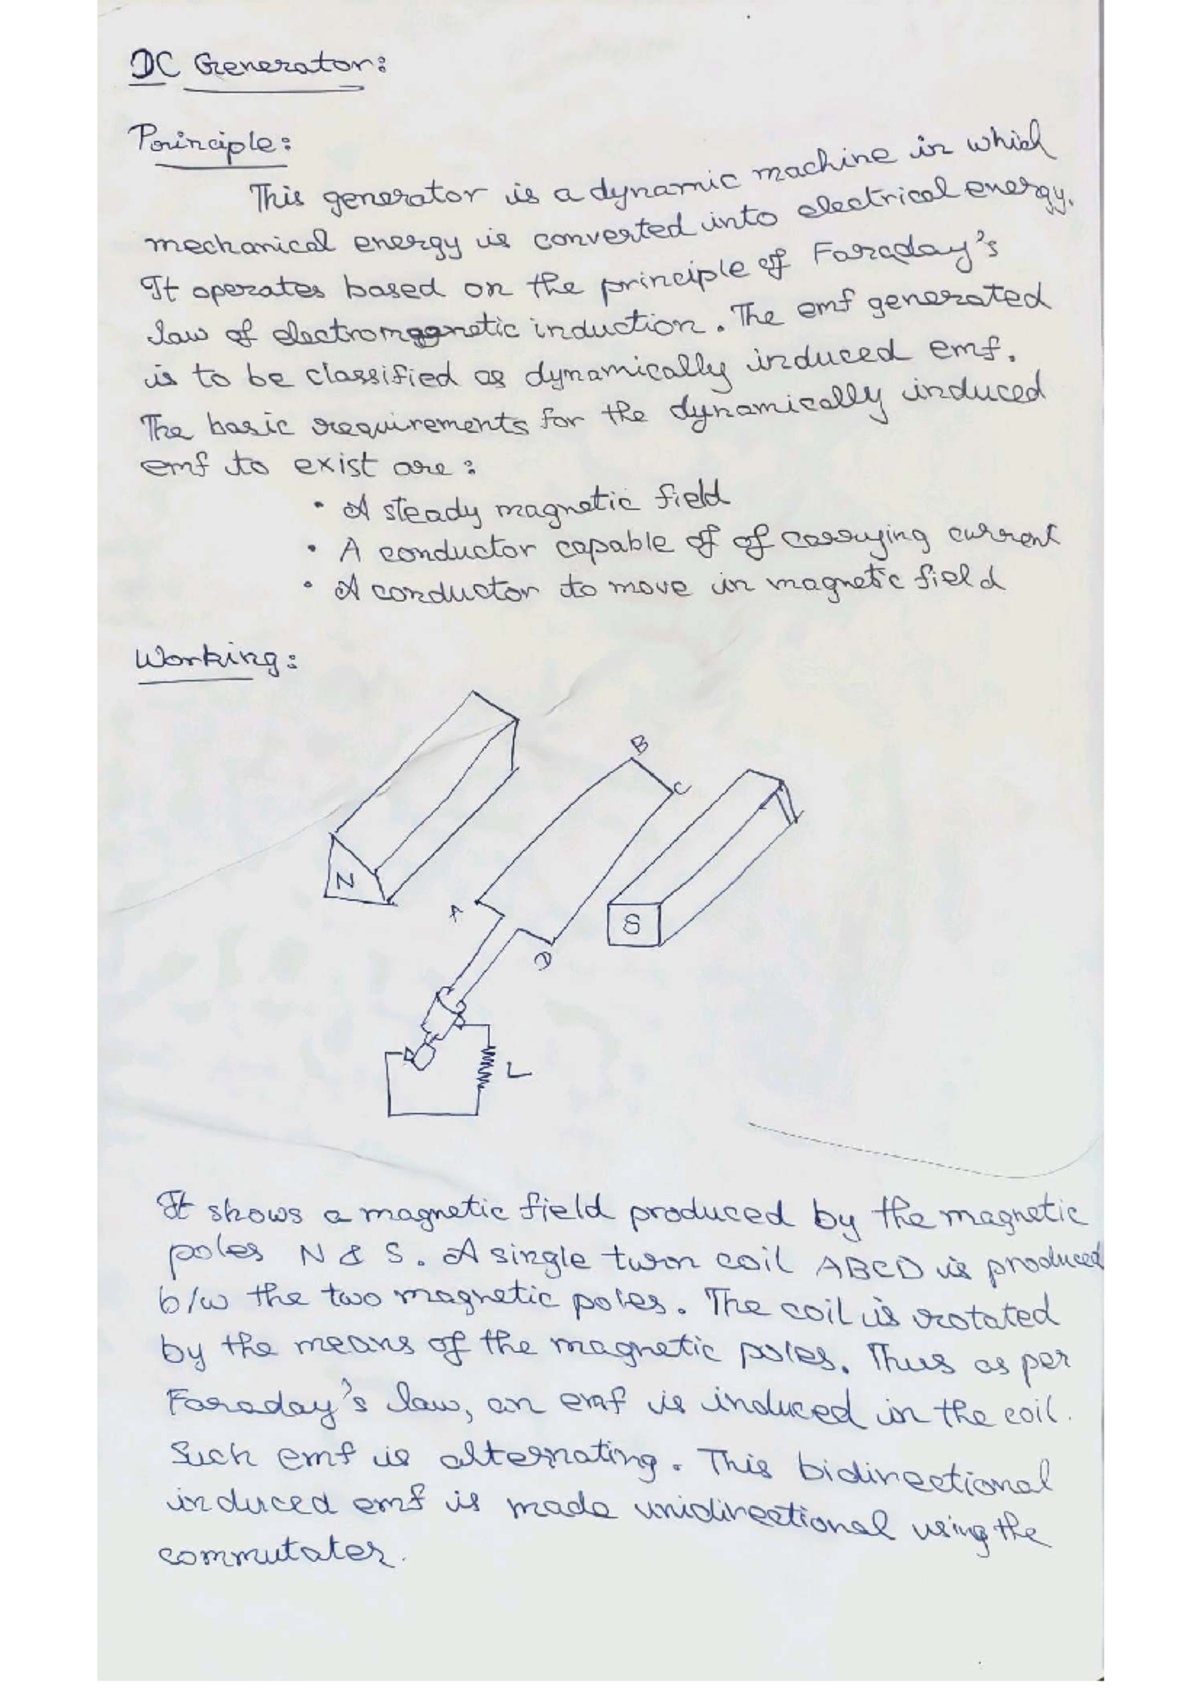 DC Generator:
Principle:
This generator is a dynamic machine in which
mechanical energy is converted into electrical energy.
It operates based on the principle of Faraday's
law of electromagnetic induction. The emf generated
is to be classified as dynamically induced emf.
The basic requirements for the dynamically induced
emf to exist are:
• A steady magnetic field
• A conductor capable of of carrying current
• A conductor to move in magnetic field
Working:
B
C
N
A
S
D
L
It shows a magnetic field produced by the magnetic
poles N & S. A single turn coil ABCD is produced
b/w the two magnetic poles. The coil is rotated
by the means of the magnetic poles. Thus as per
Faraday's law, an emf is induced in the coil.
Such emf is alternating. This bidirectional
induced emf is made unidirectional using the
commutater.